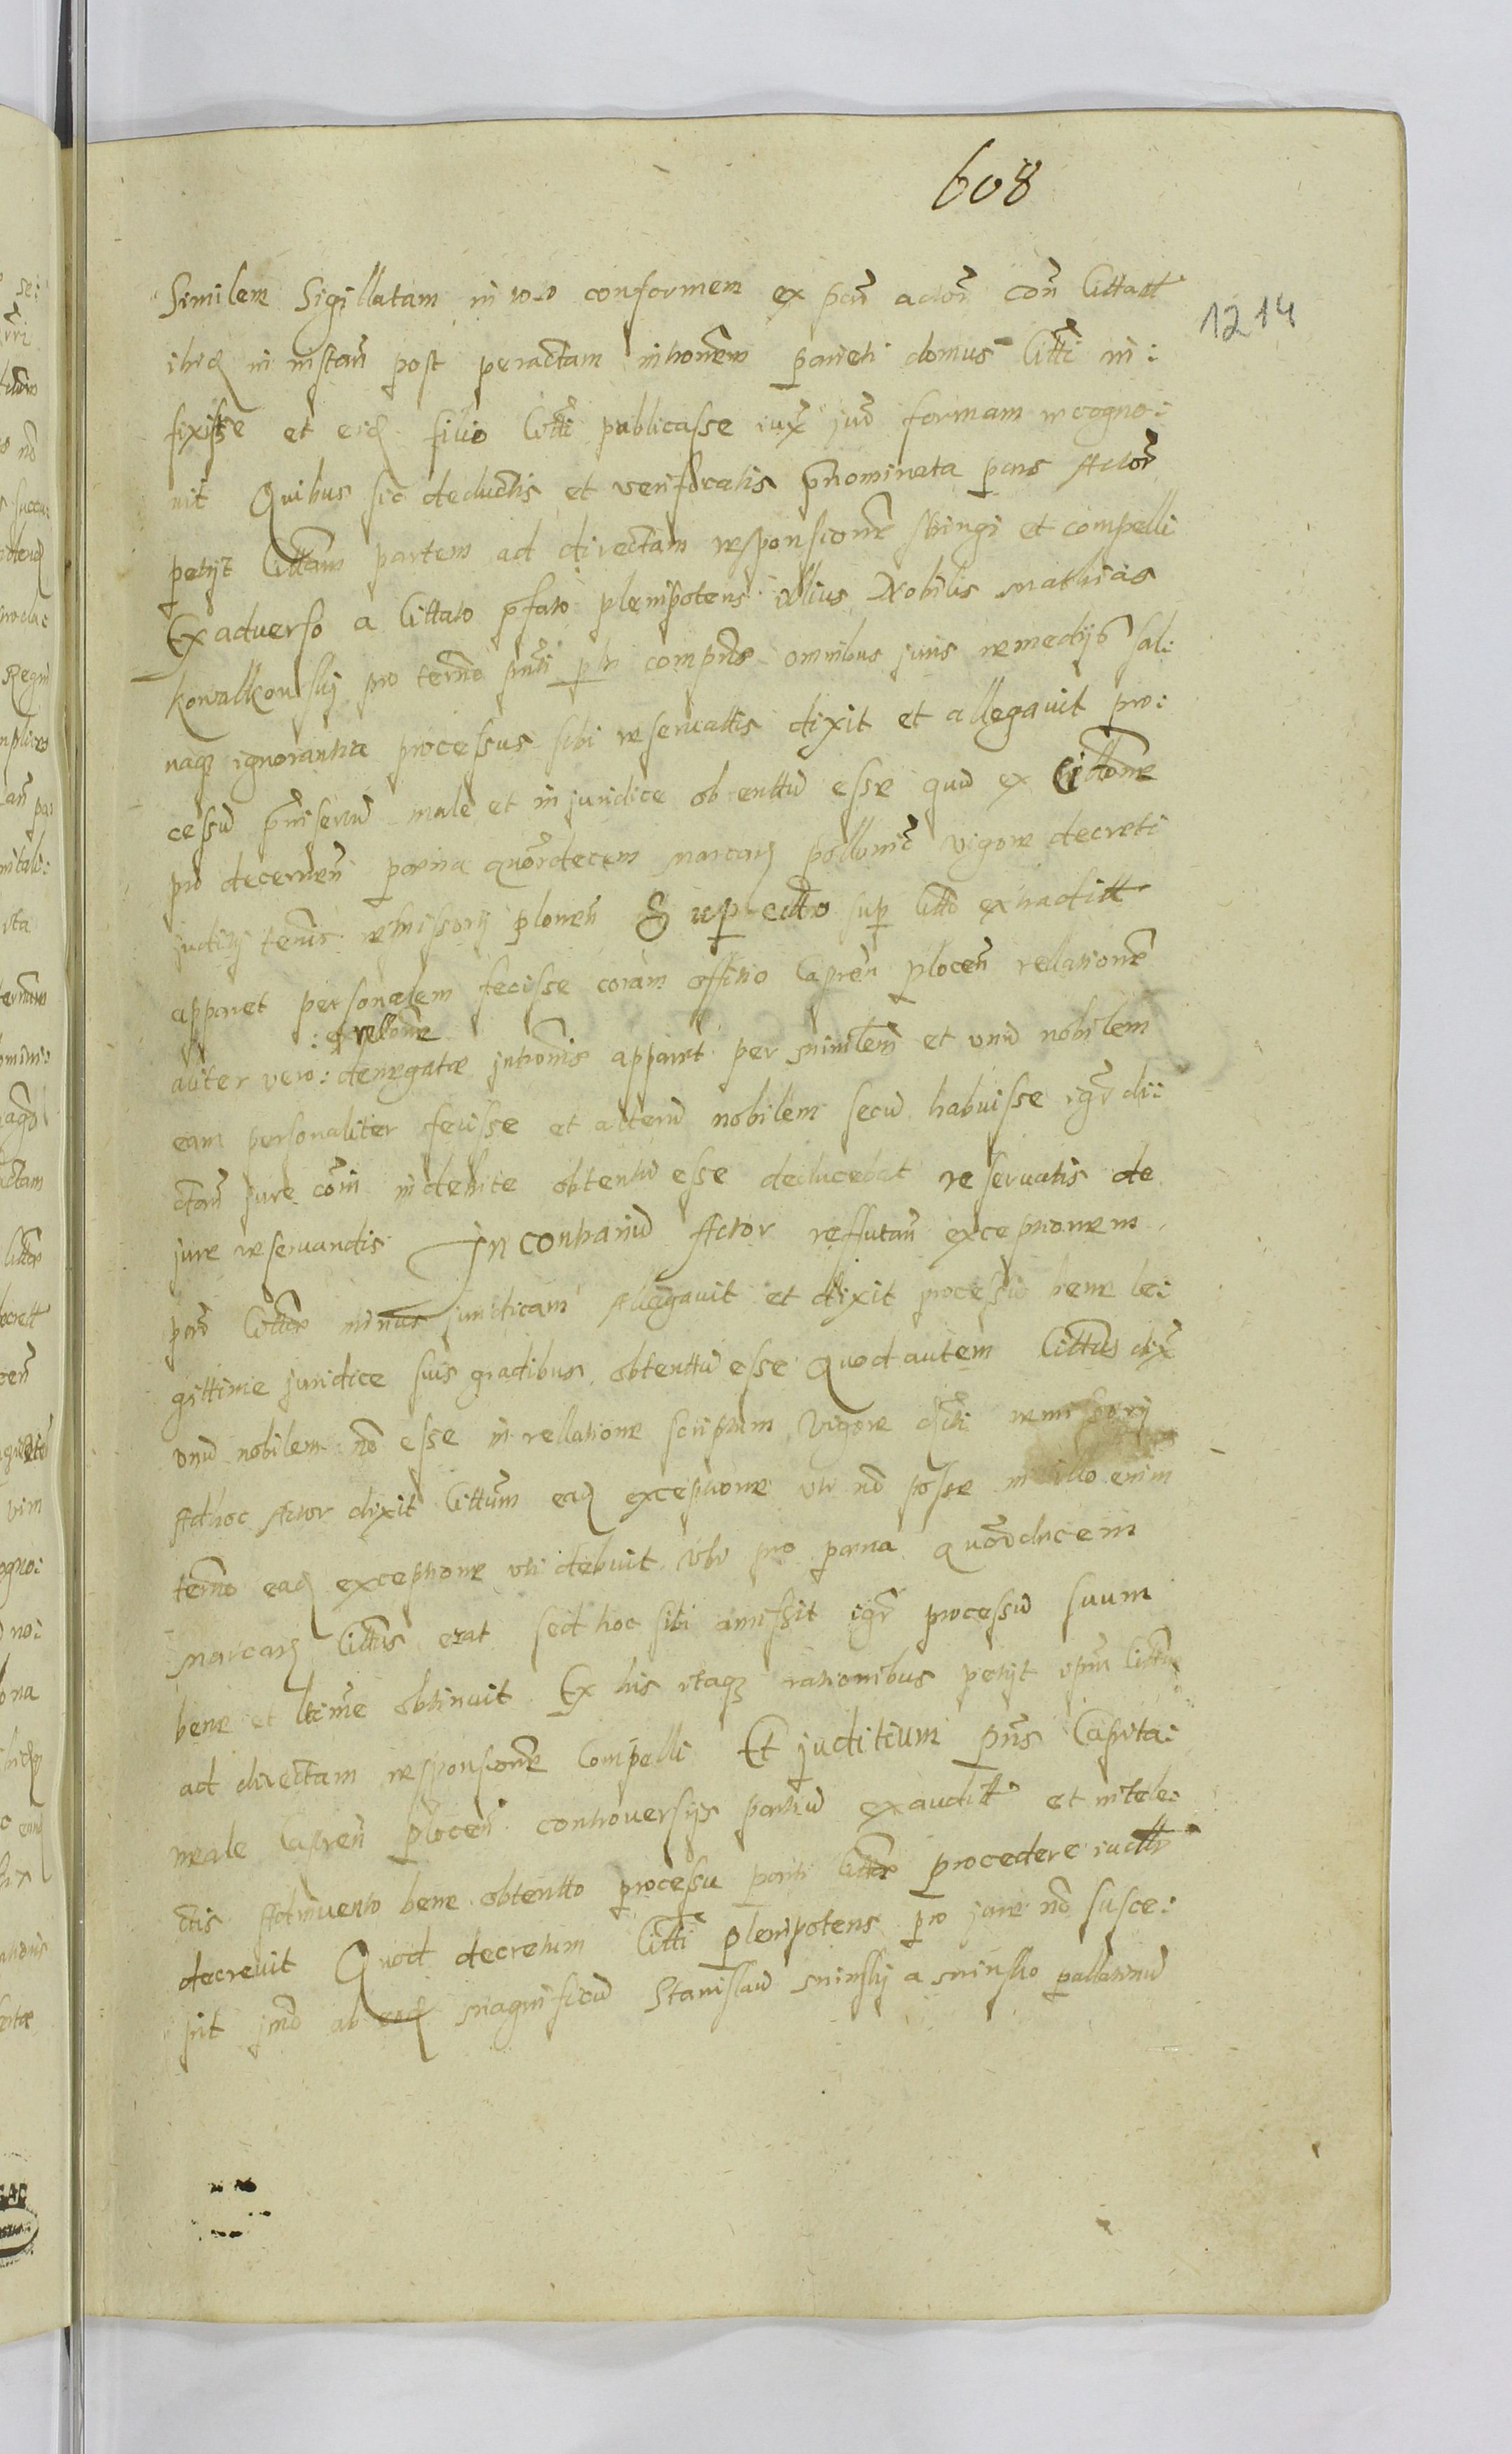 608
1214
Similem Sigillatam in toto conformem ex pte actor con Cittatt
ibid in instan post peractam introñem parieti domus Citti in:
fixisse et eid filio Citti publicasse iux jur formam recogno:
vit Quibus sic deductis et verificatis pnominata pars Actor
petijt Cittam partem ad directam responsione stringi et compelli
Ex adverso a Cittato pfato plenipotens illius Nobilis Mathias
kowalkowskj pro termo pnti ptr comprns omnibus juris remedijs sal:
uaqz ignorantia processus sibi reservattis dixit et allegavit pro:
cessu pmisseru male et in juridice obtenttu esse quia ex Cittone
pro decernen poena quordecem marcarz pollonic vigore decreti
juditij terris remissorij plonen Super citto sup Citto extraditt
apparet personalem fecisse coram offitio Capren plocen rellatione
: ex rellone
aliter vero: denegatae intronis apparet per ministlem et unu nobilem
eam personaliter fecisse et alteru nobilem secu habuisse igr di:
ctam jure coin indebite obtentu esse deducebat reservatis de
jure reservandis In contrariu Actor reffutan exceptionem
part Citte minus juridicam Allegavit et dixit processu bene le:
gittime juridice suis gradibus obtenttu esse Quod autem Cittus dix
unu nobilem no esse in rellatione scriptum Vigore dcreti remissorij
Ad hoc Actor dixit Cittum ead exceptione uti no posse in illo enim
termo ead exceptione uti debuit ubi pro poena quordecem
marcarz Cittus erat sed hoc sibi amissit igr processu suum
bene et ltime obtinuit Ex his itaqz rationibus petijt Cittu
ad directam responsione Compelli Et juditium pns Capita:
neale Capren plocen controversijs partiu exauditt et intele:
ctis Adinvento bene obtentto processu parti Citte procedere
decrevit Quod decretum Citti plenipotens pro jure no susce:
pit jmo ab eod magnificu Stanislau minskij a minsko pallatinu